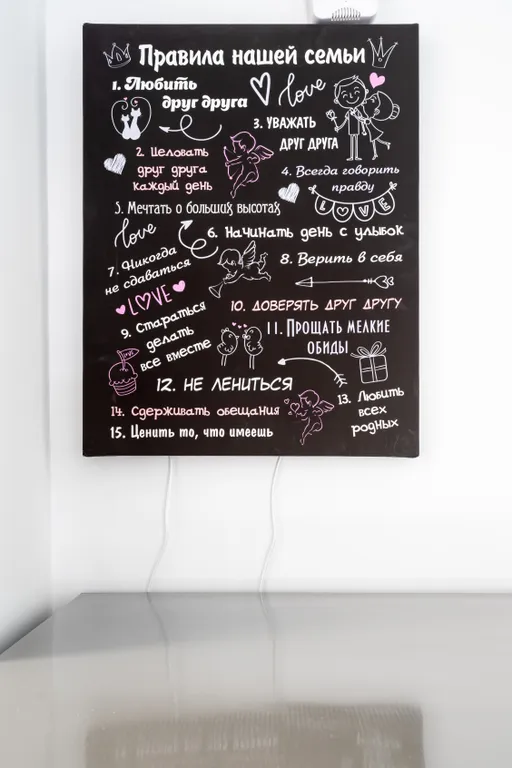 Правила нашей семьи
1. Любить
друг друга
love
3. УВАЖАТЬ
ДРУГ ДРУГА
2. Целовать
друг друга
каждый день
4. Всегда говорить
правду
LOVE
5. Мечтать о больших высотах
love
6. Начинать день с улыбок
7. Никогда
не сдаваться
8. Верить в себя
LOVE
9. Стараться
делать
все вместе
10. ДОВЕРЯТЬ ДРУГ ДРУГУ
11. Прощать мелкие
обиды
12. НЕ ЛЕНИТЬСЯ
13. Любить
всех
родных
14. Сдерживать обещания
15. Ценить то, что имеешь